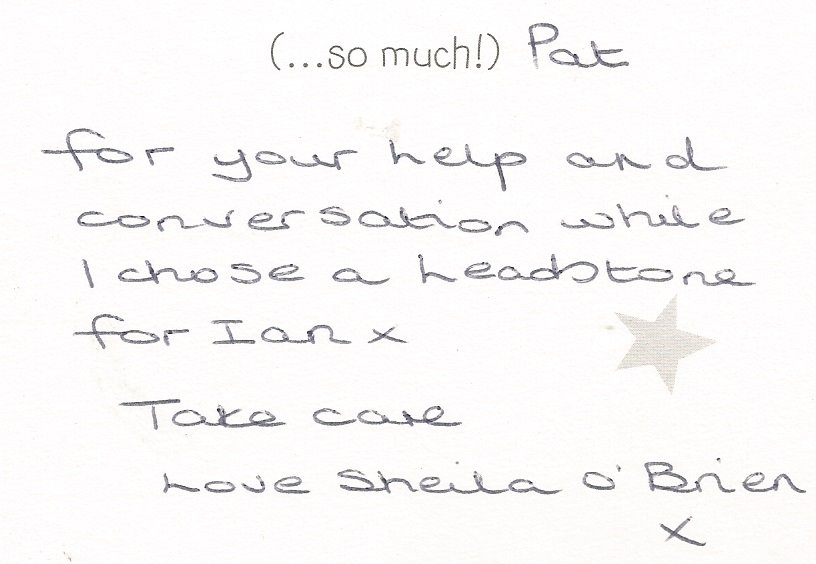 (...so much!) Pat
for your help and
conversation while
I chose a headstone
for Ian x
Take care
Love Sheila O'Brien
x